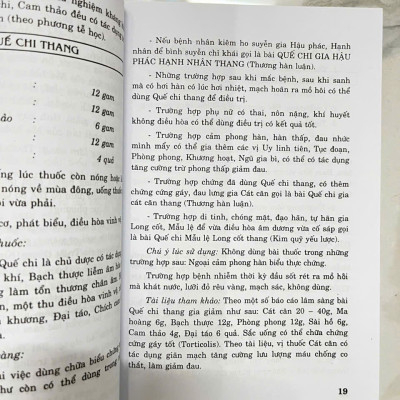 nghiệm không
chi, Cam thảo đều có tác dụng
(theo phương tễ học).
QUẾ CHI THANG
: 12 gam
: 12 gam
ảo : 6 gam
: 12 gam
: 4 quả
lúc thuốc còn nóng
nóng về mùa đông, uống thuốc
vừa phải.
cơ, phát biểu, điều hòa vinh vệ
thuốc:
Chi là chủ dược có tác dụng
khí, Bạch thược liễm âm
làm tổn thương chân âm
, một thu điều hòa vinh vệ
khương, Đại táo, Chích cam
sàng:
việc dùng chữa biểu chứng
còn có thể dùng trong
- Nếu bệnh nhân kiêm ho suyễn gia Hậu phác, Hạnh
nhân để bình suyễn chỉ khái gọi là bài QUẾ CHI GIA HẬU
PHÁC HẠNH NHÂN THANG (Thương hàn luận).
- Những trường hợp sau khi mắc bệnh, sau khi sanh
mà có hơi hàn có lúc hơi nhiệt, mạch hoãn ra mồ hôi có thể
dùng Quế chi thang để điều trị.
- Trường hợp phụ nữ có thai, nôn nặng, khí huyết
không điều hòa có thể dùng điều trị có kết quả tốt.
- Trường hợp cảm phong hàn, hàn thấp, đau nhức
mình mẩy có thể gia thêm các vị Uy linh tiên, Tục đoạn,
Phòng phong, Khương hoạt, Ngũ gia bì, có thể có tác dụng
tăng cường trừ phong thấp giảm đau.
- Trường hợp chứng đã dùng Quế chi thang, có thêm
chứng cứng gáy, đau lưng gia Cát căn gọi là bài Quế chi gia
cát căn thang (Thương hàn luận).
- Trường hợp di tinh, chóng mặt, đạo hãn, tự hãn gia
Long cốt, Mẫu lệ để vừa điều hòa âm dương vừa cố sáp gọi
là bài Quế chi Mẫu Lệ Long cốt thang (Kim quỹ yếu lược).
Chú ý lúc sử dụng: Không dùng bài thuốc trong những
trường hợp sau: Ngoại cảm phong hàn biểu thực chứng.
Trường hợp bệnh nhiễm thời kỳ đầu sốt rét ra mồ hôi
mà khát nước, lưỡi đỏ rêu vàng, mạch sác, không dùng.
Tài liệu tham khảo: Theo một số báo cáo lâm sàng bài
Quế chi thang gia giảm như sau: Cát căn 20 – 40g, Ma
hoàng 6g, Bạch thược 12g, Phòng phong 12g, Sài hồ 6g,
Cam thảo 4g, Đại táo 6 quả. Sắc uống có thể chữa chứng
cứng gáy tốt (Torticolis). Theo tài liệu, vị thuốc Cát căn có
tác dụng giãn mạch tăng cường lưu lượng máu chống co
thắt, làm giảm đau.
19